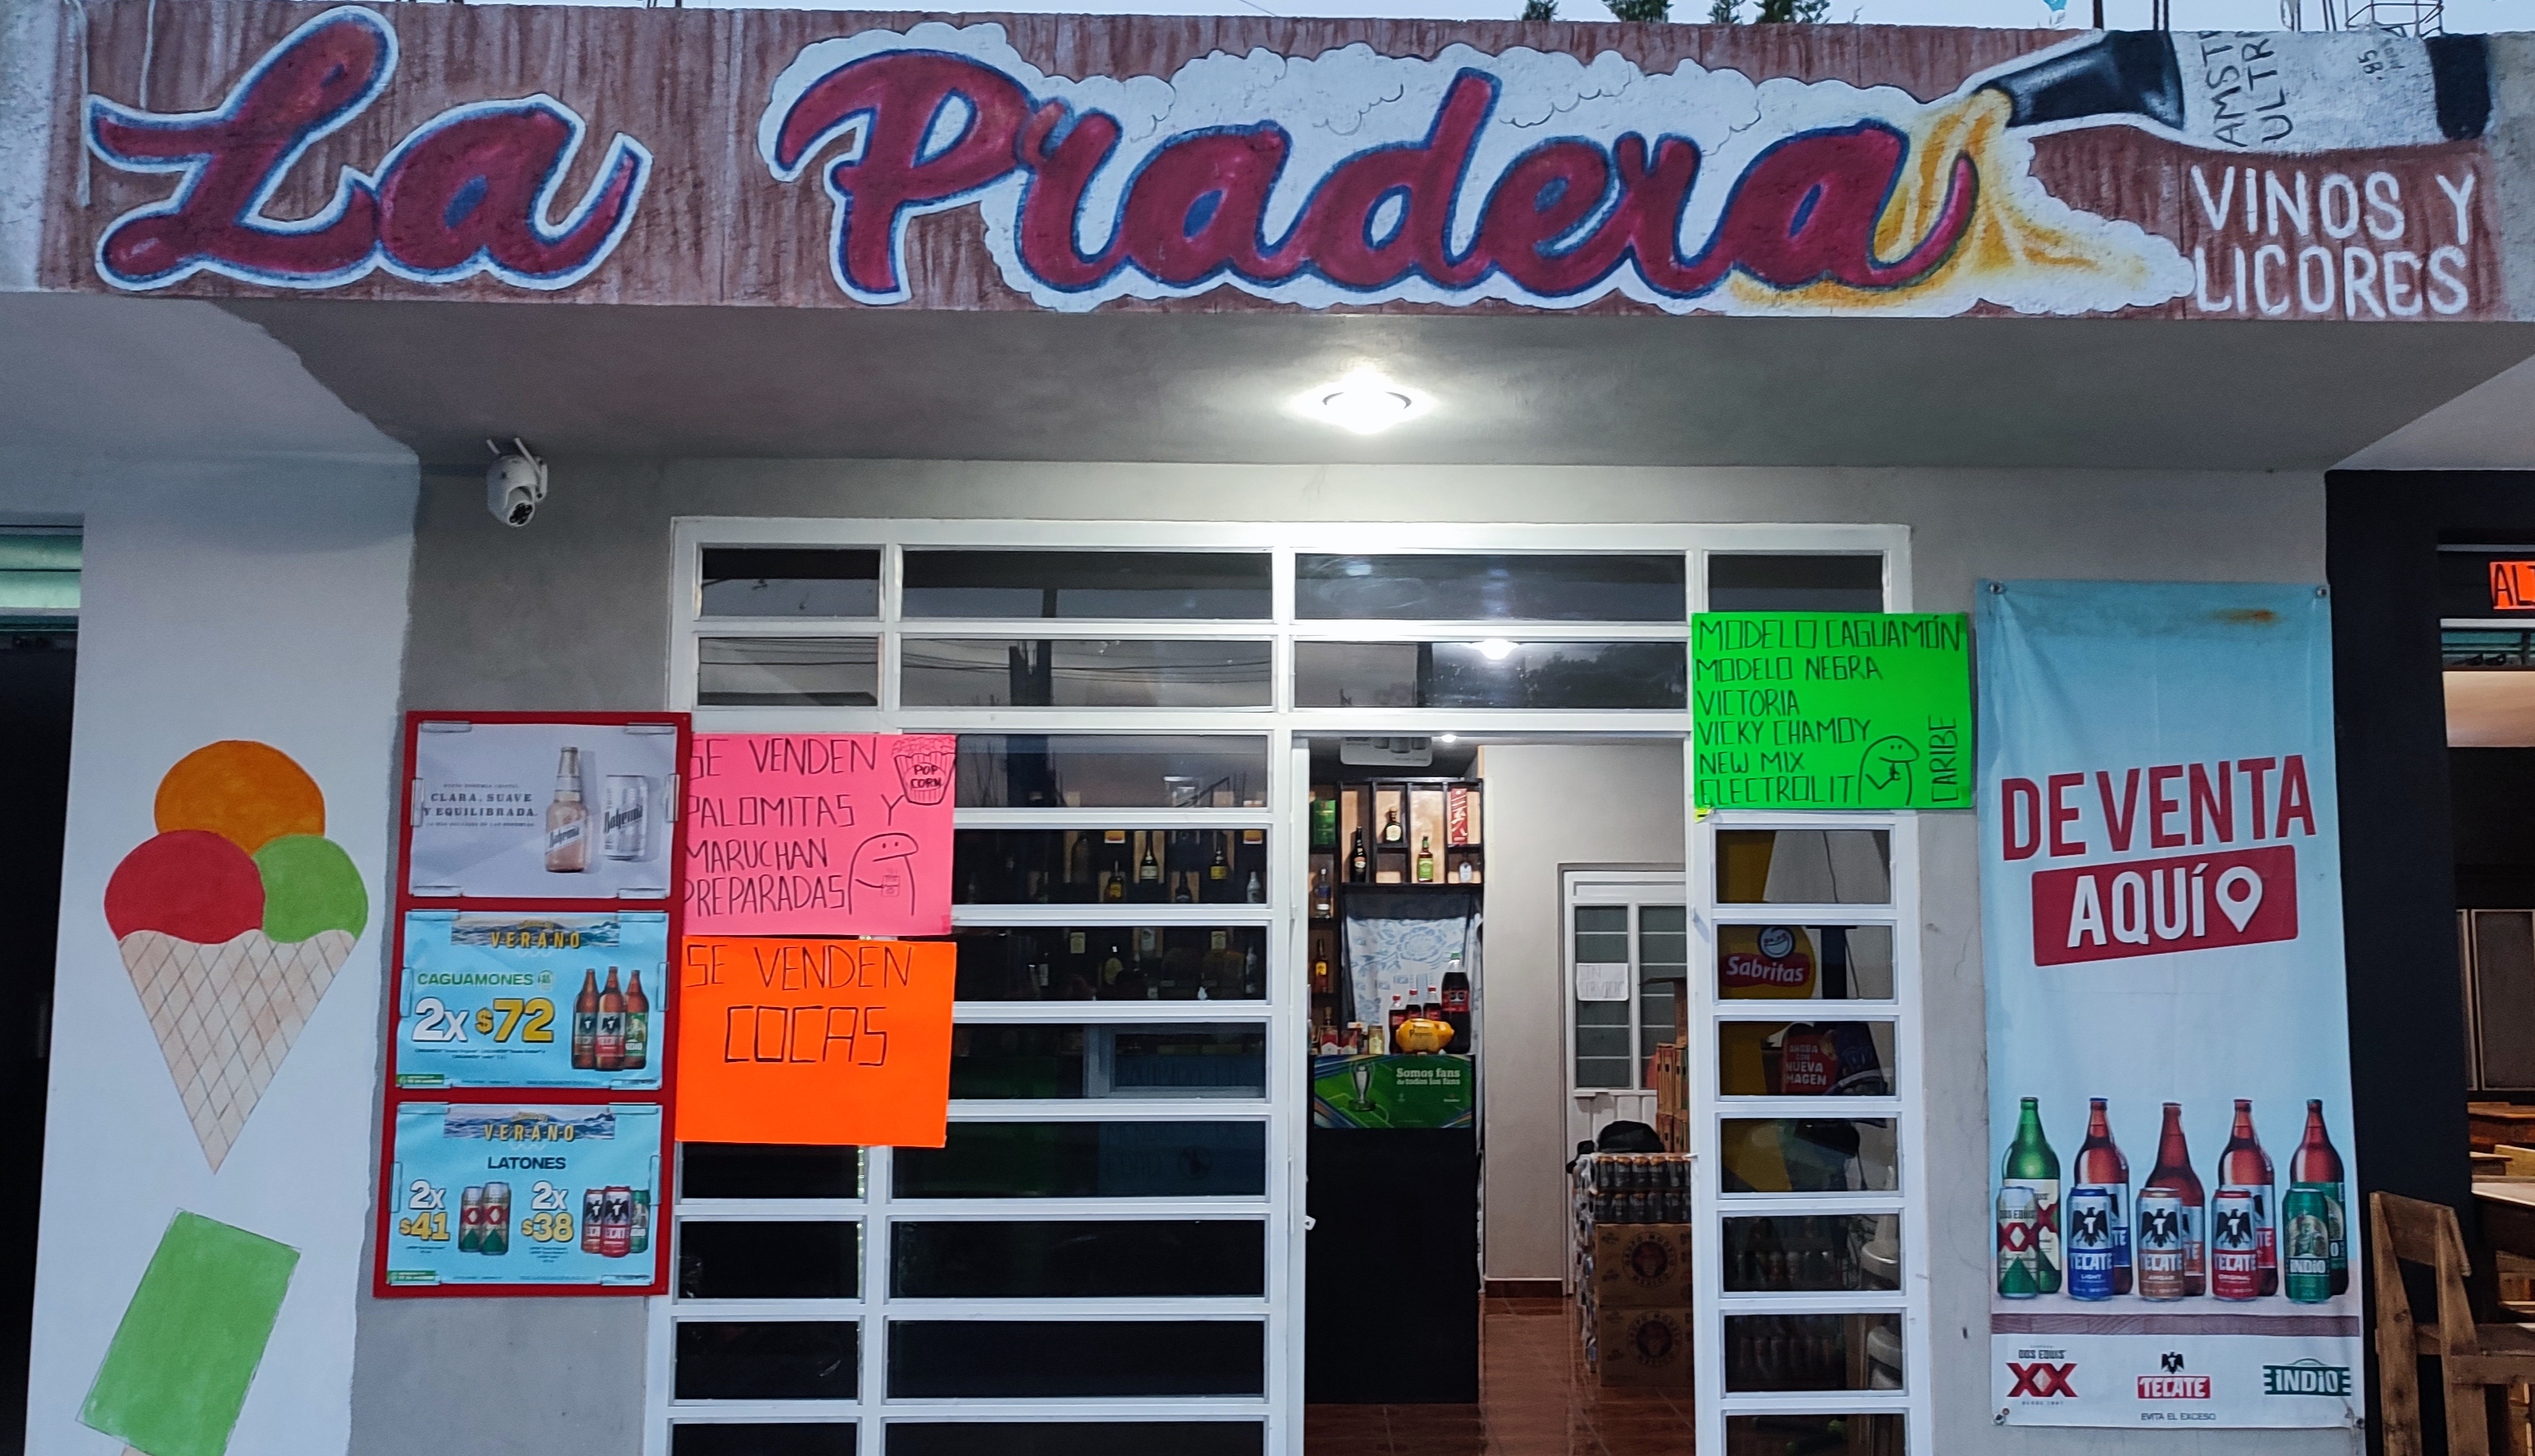 La Pradera
AMST
ULTR
.85
VINOS Y
LICORES
ALT
MODELO CAGUAMÓN
MODELO NEGRA
VICTORIA
VICKY CHAMOY
NEW MIX
ELECTROLIT
CARIBE
SE VENDEN
PALOMITAS Y
MARUCHAN
PREPARADAS
POP
CORN
SE VENDEN
COCAS
CLARA, SUAVE
Y EQUILIBRADA.
Bohemia
Bohemia
VERANO
CAGUAMONES
2x $72
VERANO
LATONES
2x
$41
2x
$38
Sabritas
AHORA
CON
NUEVA
IMAGEN
Somos fans
de todos los fans
DE VENTA
AQUÍ
XX
TECATE
LIGHT
TECATE
TECATE
ORIGINAL
INDIO
DOS EQUIS
XX
TECATE
INDIO
EVITA EL EXCESO